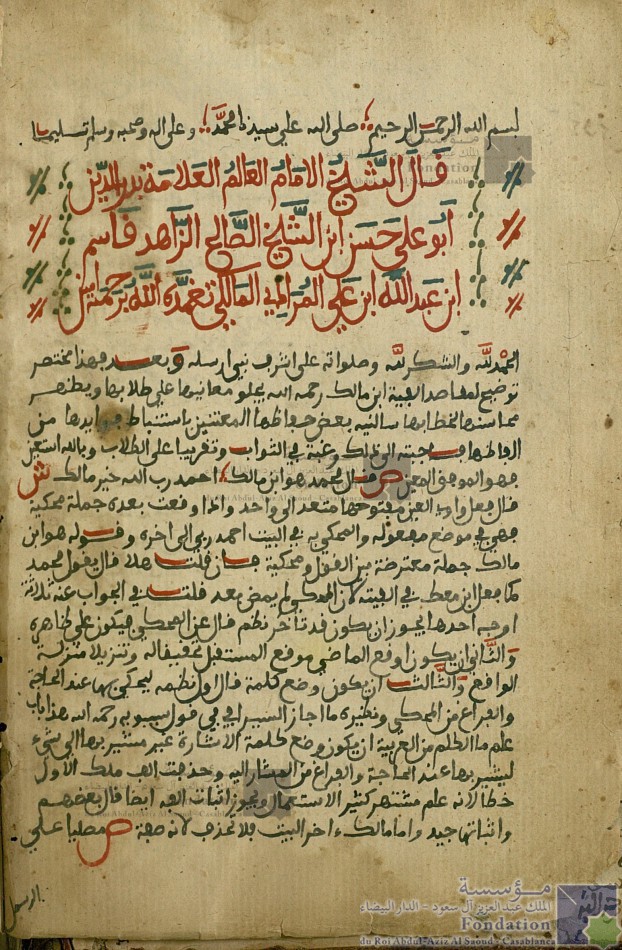 بسم الله الرحمن الرحيم صلى الله على سيدنا محمد وعلى اله وصحبه وسلم تسليما
قال الشيخ الامام العالم العلامة بدر الدين
أبو علي حسن ابن الشيخ الصالح الزاهد قاسم
ابن عبد الله ابن علي المرادي المالكي تغمده الله برحمته امين
الحمد لله والشكر لله وصلواته على اشرف نبي ارسله وبعد فهذا مختصر
توضيح لمقاصد الفية ابن مالك رحمه الله يجلو معانيها على طلابها ويظهر
محاسنها لخطابها سالنيه بعض حفاظها المعتنين باستنباط فوايدها من
الفاظها فاجبته الى ذلك رغبة في الثواب وتقريبا على الطلاب وبالله استعين
فهو الموفق المعين ص قال محمد هو ابن مالك احمد ربي الله خير مالك ش
قال فعل واوي العين مفتوحها متعد الى واحد واذا وقعت بعده جملة محكية
فهي في موضع مفعوله والمحكي به في البيت احمد ربي الى اخره وقوله هو ابن
مالك جملة معترضة بين القول ومحكيه فان قلت هلا قال يقول محمد
كما فعل ابن معط في الفيته لان المحكي لم يمض بعد قلت في الجواب عنه ثلاثة
اوجه احدها يجوز ان يكون قد تاخر نظم قال عن المحكي فيكون على ظاهره
والثاني ان يكون اوقع الماضي موقع المستقبل تحقيقا له وتنزيلا منزلة
الواقع والثالث ان يكون وضع كلمة قال اول نظمه ليحكي بها عند الحاجة
والفراغ من المحكي ونظيره ما اجاز السيرافي في قول سيبويه رحمه الله هذا باب
علم ما الكلم من العربية ان يكون وضع كلمة الاشارة غير مشير بها الى شيء
ليشير بها عند الحاجة والفراغ من المشار اليه وحذفت الف ملك الاول
خطا لانه علم مشتهر كثير الاستعمال ويجوز اثبات الفه ايضا قال بعضهم
واثباتها جيد واما مالك اخر البيت فلا تحذف لانه صفة ص مصليا على
الرسول
مؤسسة
الملك عبد العزيز آل سعود - الدار البيضاء
Fondation
du Roi Abdul-Aziz Al Saoud - Casablanca